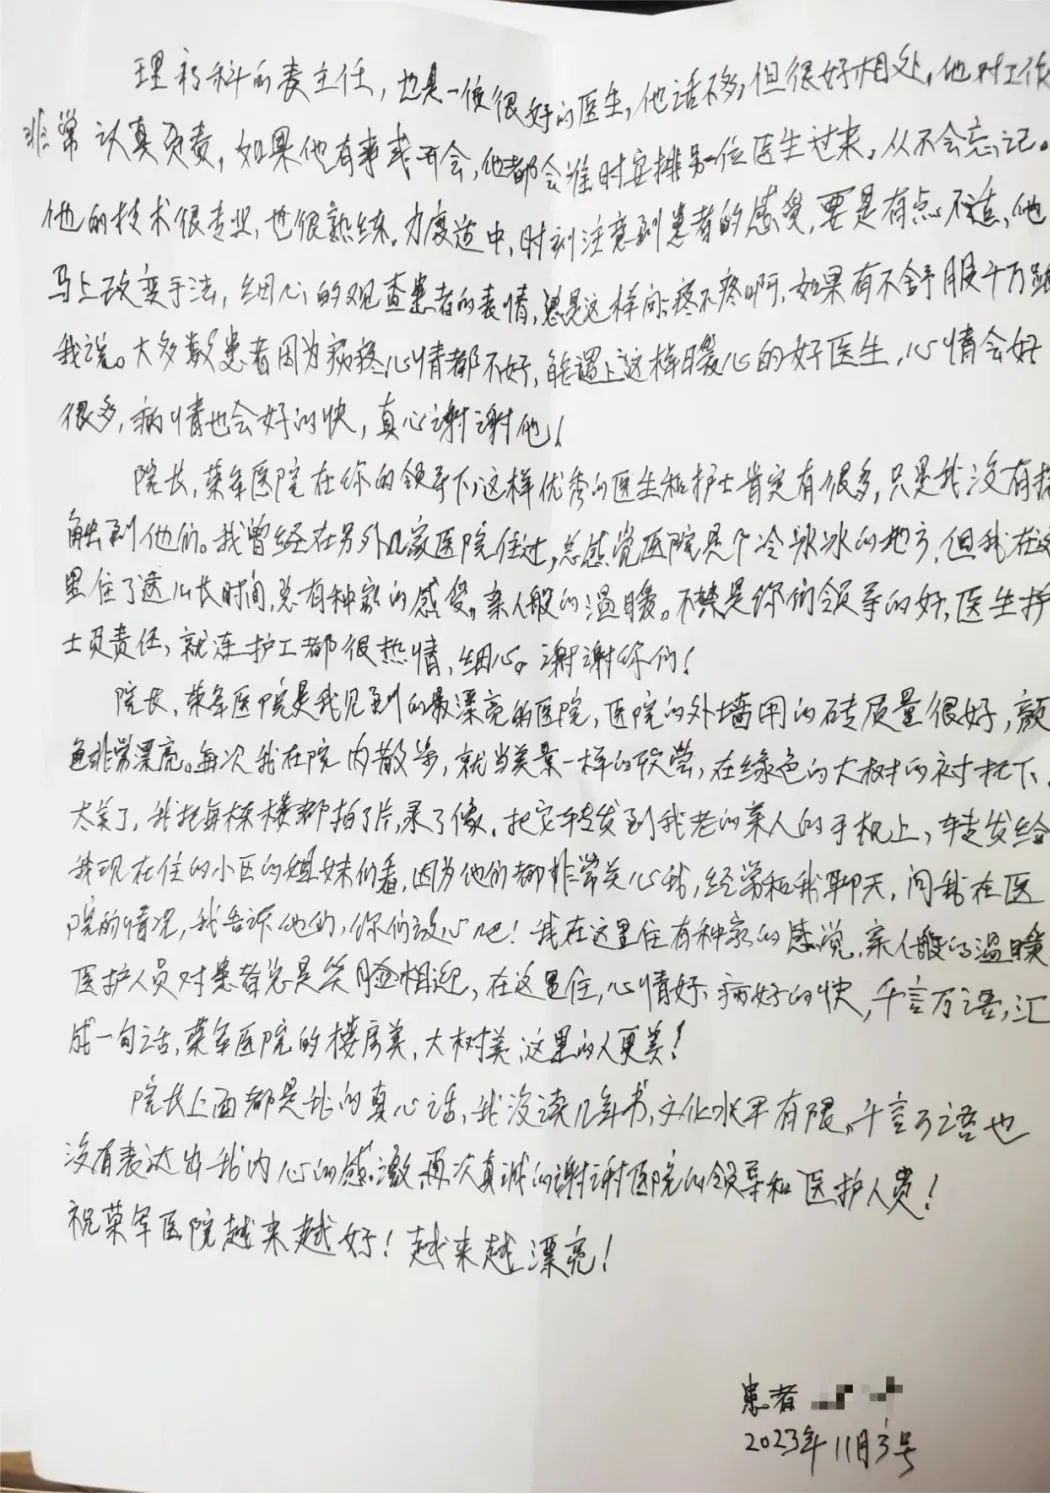 理疗科的袁主任，也是一位很好的医生，他话不多，但很好相处，他对工作
非常认真负责，如果他有事或开会，他都会准时安排另一位医生过来，从不会忘记。
他的技术很专业，也很熟练。力度适中，时刻注意到患者的感受，要是有点不适，他
马上改变手法，细心的观查患者的表情，总是这样问：疼不疼啊，如果有不舒服千万跟
我说。大多数患者因为病疼心情都不好，能遇上这样暖心的好医生，心情会好
很多，病情也会好的快，真心谢谢他！
院长，荣军医院在你的领导下，这样优秀的医生和护士肯定有很多，只是我没有接
触到他们。我曾经在另外几家医院住过，总感觉医院是个冷冰冰的地方，但我在这
里住了这么长时间，总有种家的感受。亲人般的温暖。不禁是你们领导的好，医生护
士负责任，就连护工都很热情，细心。谢谢你们！
院长，荣军医院是我见到的最漂亮的医院，医院的外墙用的砖质量很好，颜
色非常漂亮。每次我在院内散步，就当美景一样的欣赏，在绿色的大树的衬托下，
太美了，我把每栋楼都拍了片，录了像。把它转发到我老的亲人的手机上，转发给
我现在住的小区的姐妹们看，因为他们都非常关心我，经常和我聊天，问我在医
院的情况，我告诉他们，你们放心吧！我在这里住有种家的感觉，亲人般的温暖
医护人员对患者总是笑脸相迎，在这里住，心情好、病好的快，千言万语，汇
成一句话，荣军医院的楼房美，大树美，这里的人更美！
院长上面都是我的真心话，我没读几年书，文化水平有限。千言万语也
没有表达出我内心的感激，再次真诚的谢谢医院的领导和医护人员！
祝荣军医院越来越好！越来越漂亮！
患者
2023年11月3号